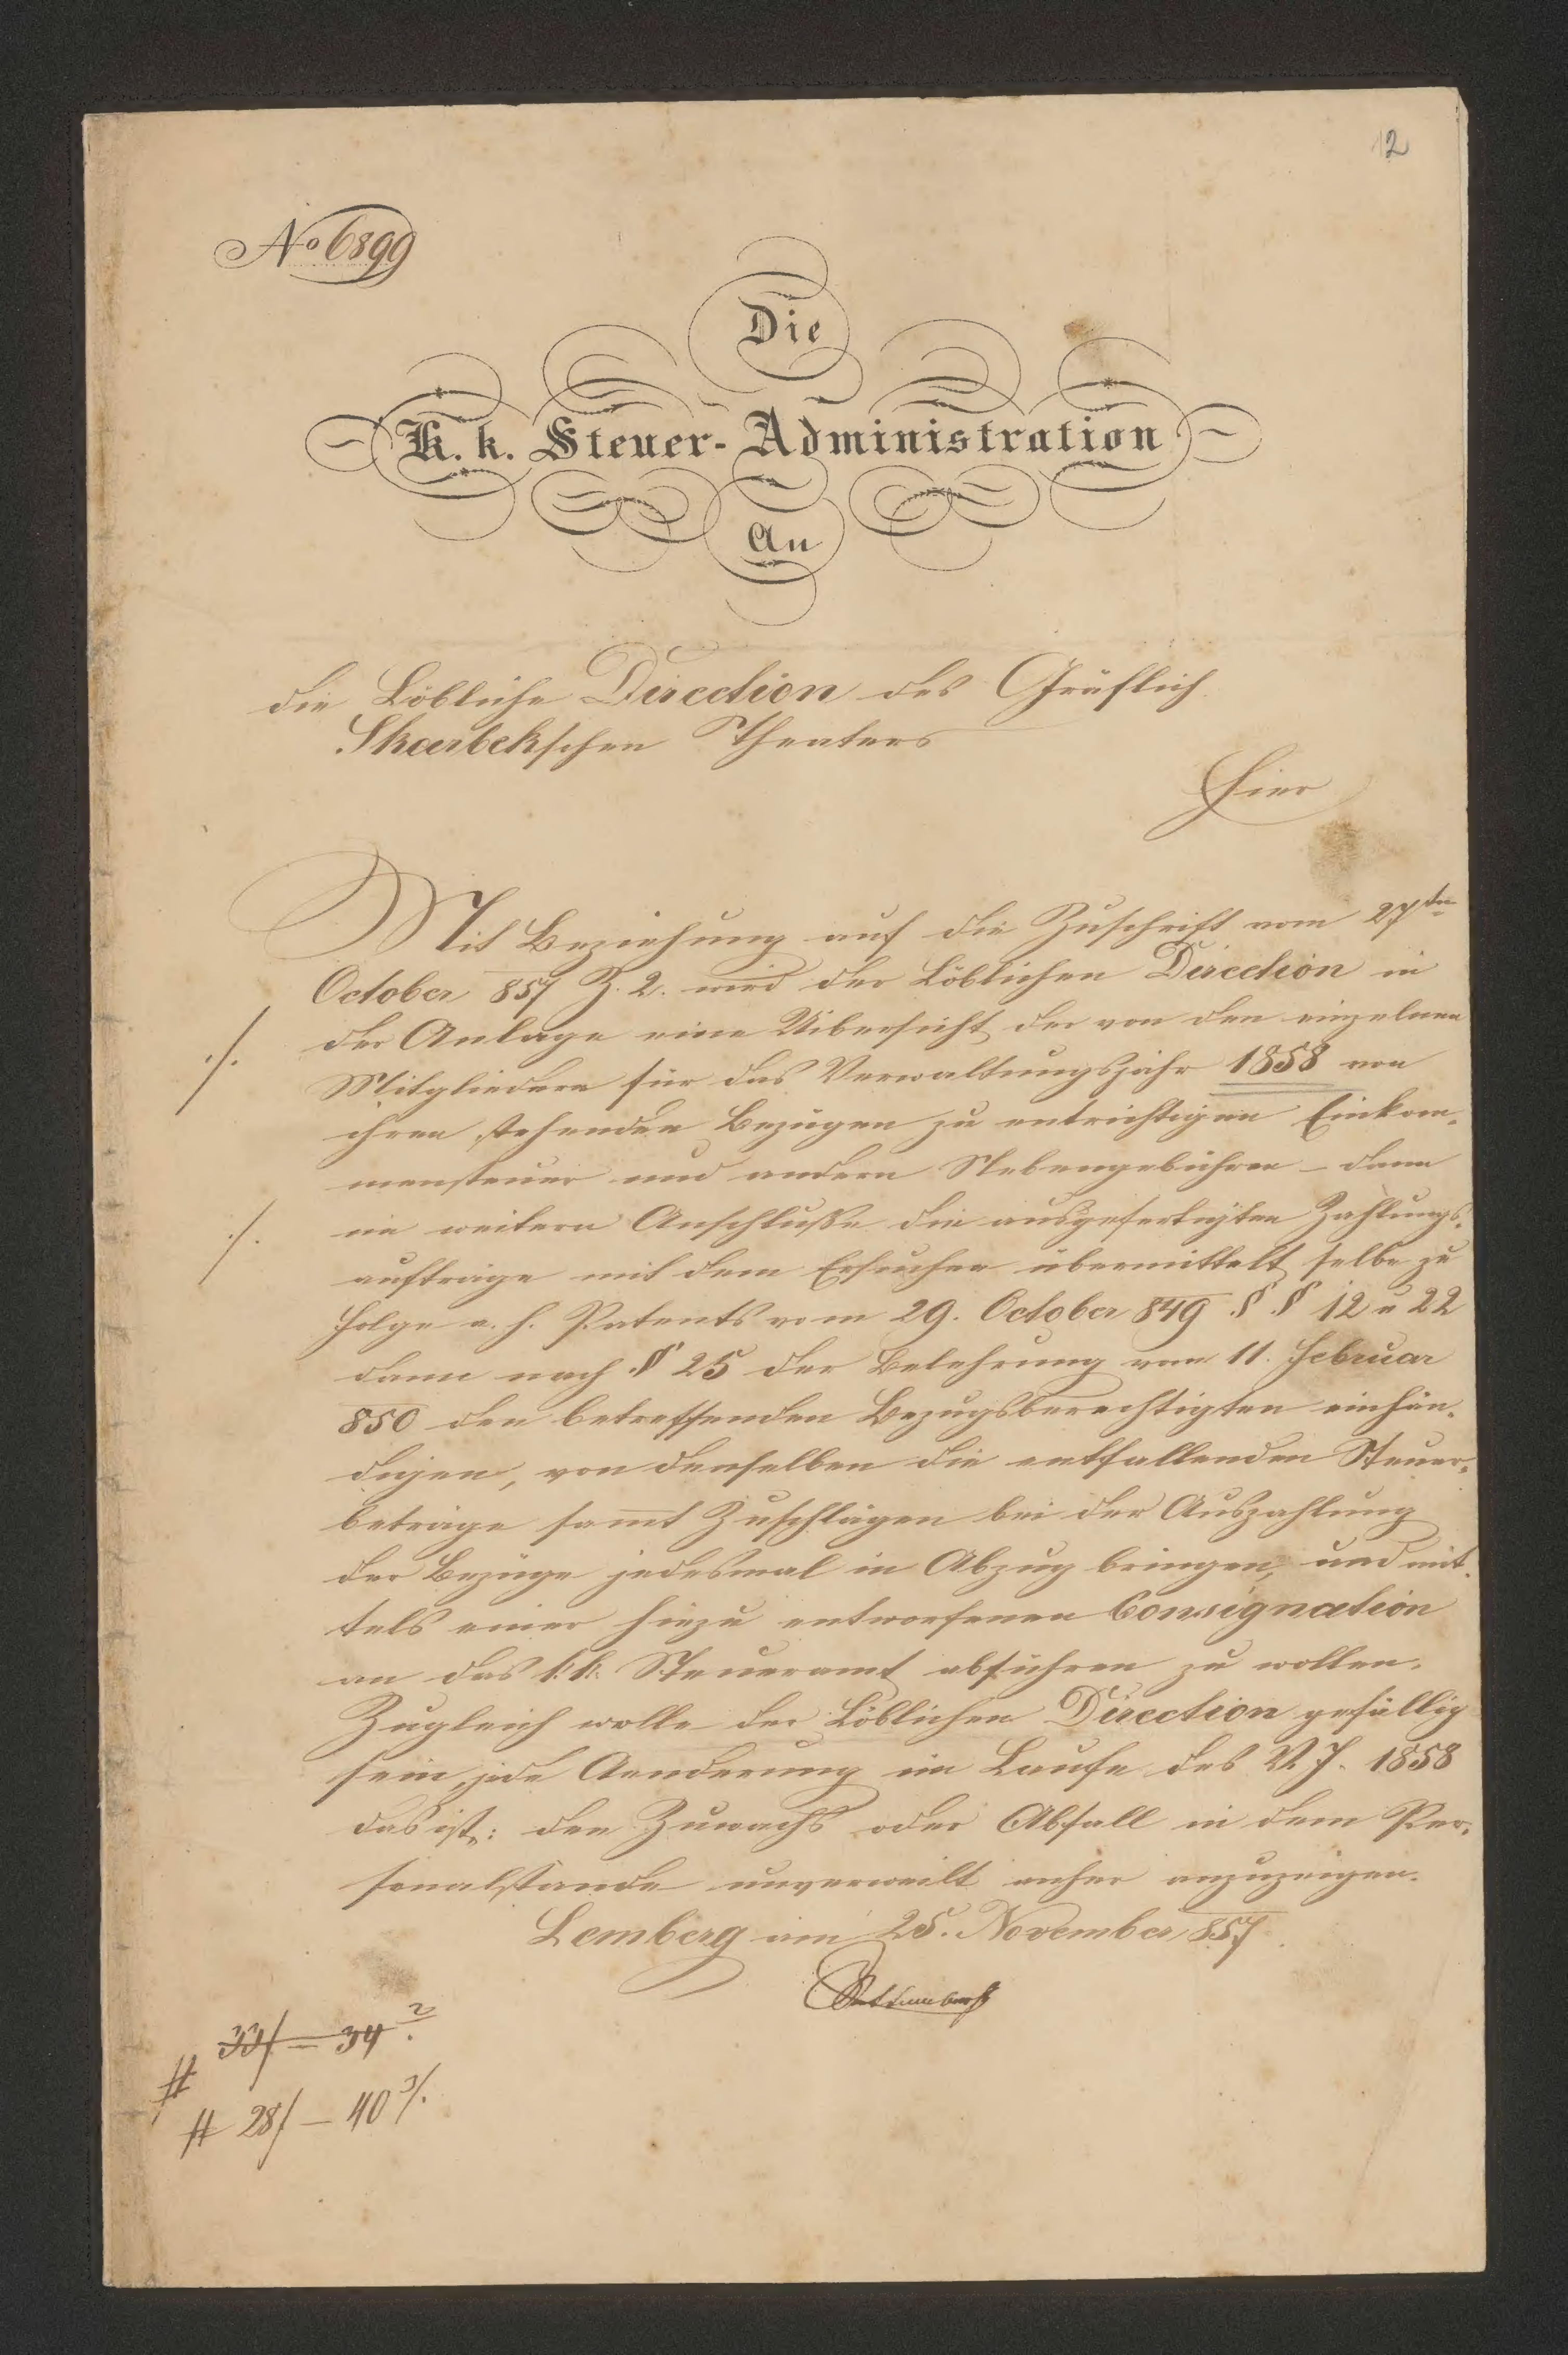 12
No 6899
Die
K. k. Steuer-Administration
An
die Löbliche Direction des Gräflich
Skarbekschen Theaters
Hier
Mit Beziehung auf die Zuschrift vom 27ten
October 857 Z. 2. wird der Löblichen Direction in
./. der Anlage eine Uibersicht der von den einzelnen
Mitgliedern für das Verwaltungsjahr 1858 von
ihren stehenden Bezügen zu entrichtigen Einkom-
mensteuer und andern Nebengebühren – dann
./. im weitern Anschluße die ausgefertigten Zahlungs-
aufträge mit dem Ersuchen übermittelt selbe zu
Folge a. h. Patents vom 29. October 849 § § 12 u 22
dann nach § 25 der Belehrung vom 11. Februar
850 den betreffenden Bezugsberechtigten einhän-
digen, von denselben die entfallenden Steuer-
beträge sam̅t Zuschlägen bei der Auszahlung
der Bezüge jedesmal in Abzug bringen, und mit-
tels einer hiezu entworfenen Consignation
an das k.k. Steueramt abführen zu wollen.
Zugleich wolle der Löblichen Direction gefällig
sein, jede Aenderung im Laufe des V. J. 1858
das ist: den Zuwachs oder Abfall in dem Per-
sonalstande unverweilt anher anzuzeigen.
Lemberg am 25. November 857
33f – 34 2
# 28f – 40 3/.